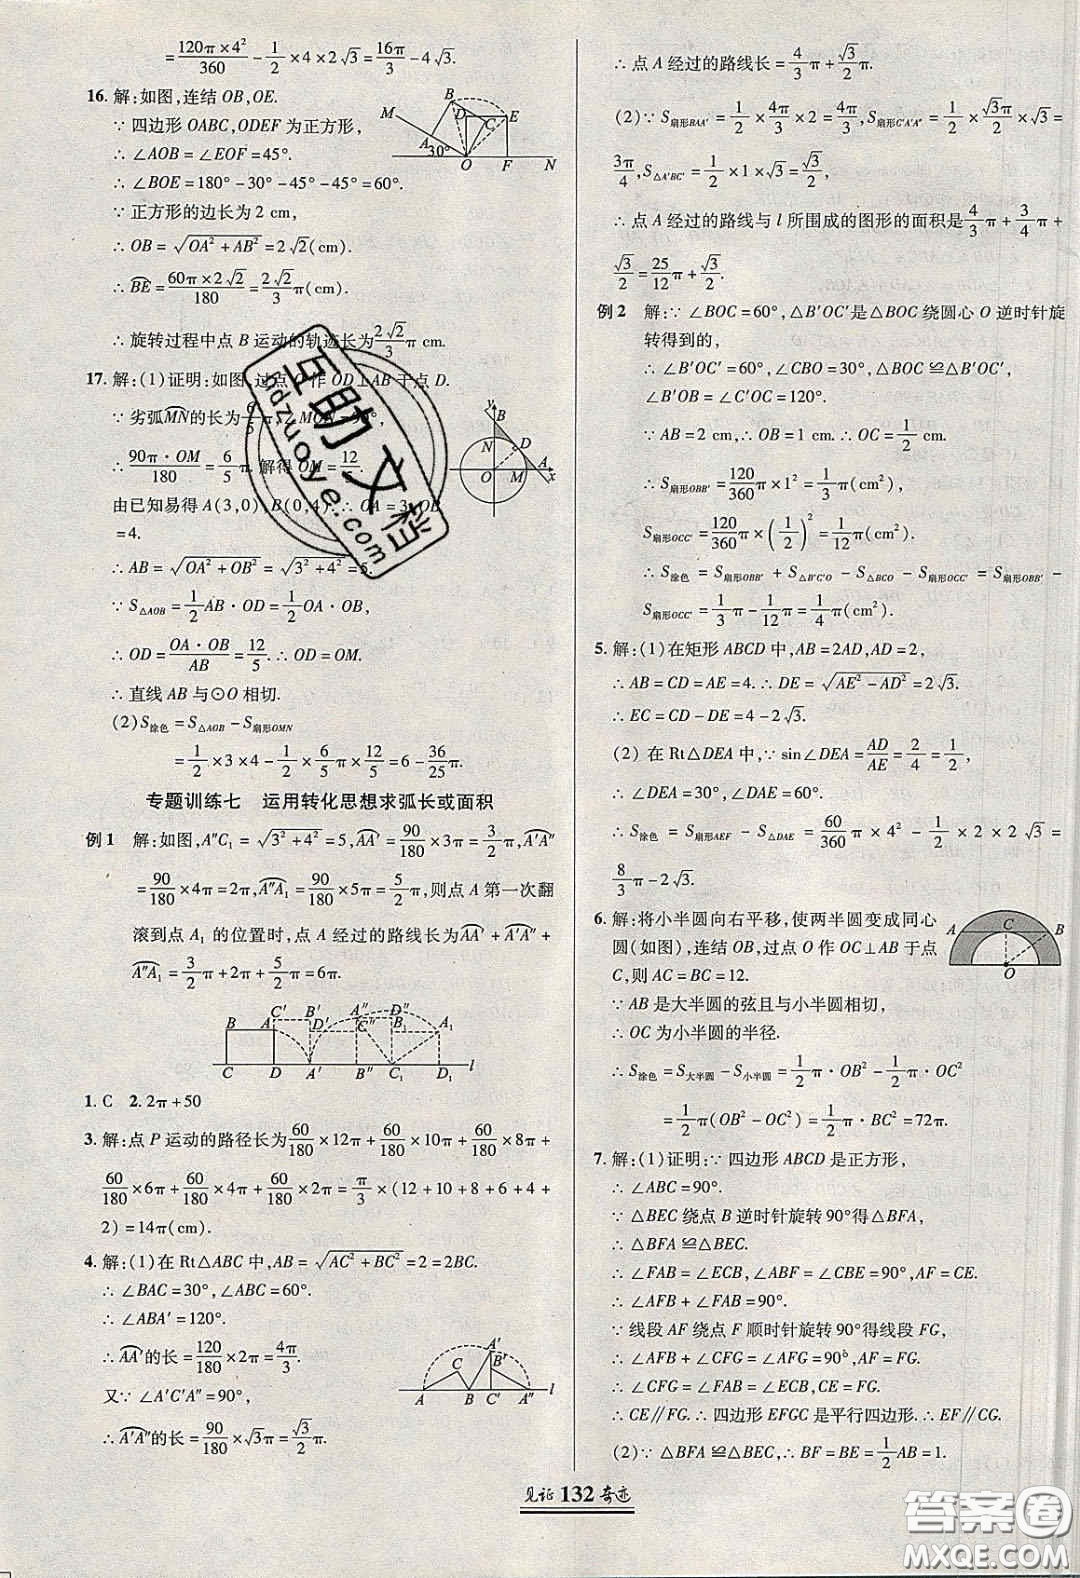 =120π×4²/360-1/2×4×2√3=16π/3-4√3.
16. 解:如图,连结OB,OE.
∵四边形OABC,ODEF为正方形,
∴∠AOB=∠EOF=45°.
∴∠BOE=180°-30°-45°-45°=60°.
∵正方形的边长为2 cm,
∴OB=√(OA²+AB²)=2√2(cm).
∴⌒BE=60π×2√2/180=2√2/3π(cm).
∴旋转过程中点B运动的轨迹长为2√2/3π cm.
M B D E C A 30° O F N
17. 解:(1)证明:如图,过点O作OD⊥AB于点D.
∵劣弧⌒MN的长为6/5π,∠MON=90°,
∴90π·OM/180=6/5π.解得OM=12/5.
由已知易得A(3,0),B(0,4).∴OA=3,OB
=4.
∴AB=√(OA²+OB²)=√(3²+4²)=5.
∵S△AOB=1/2AB·OD=1/2OA·OB,
∴OD=OA·OB/AB=12/5.∴OD=OM.
∴直线AB与⊙O相切.
(2)S涂色=S△AOB-S扇形OMN
=1/2×3×4-1/2×6/5π×12/5=6-36/25π.
y B N D O M A x
专题训练七 运用转化思想求弧长或面积
例1 解:如图,A″C₁=√(3²+4²)=5,⌒AA′=90/180×3π=3/2π,⌒A′A″
=90/180×4π=2π,⌒A″A₁=90/180×5π=5/2π,则点A第一次翻
滚到点A₁的位置时,点A经过的路线长为⌒AA′+⌒A′A″+
⌒A″A₁=3/2π+2π+5/2π=6π.
B A C′ B′ D′ A″ D″ C″ B₁ A₁
C D A′ B″ C₁ D₁ l
1. C 2. 2π+50
3. 解:点P运动的路径长为60/180×12π+60/180×10π+60/180×8π+
60/180×6π+60/180×4π+60/180×2π=π/3×(12+10+8+6+4+
2)=14π(cm).
4. 解:(1)在Rt△ABC中,AB=√(AC²+BC²)=2=2BC.
∴∠BAC=30°,∠ABC=60°.
∴∠ABA′=120°.
∴⌒AA′的长=120/180×2π=4π/3.
又∵∠A′C′A″=90°,
∴⌒A′A″的长=90/180×√3π=√3/2π.
A′ C B′ A B C′ A″ l
∴点A经过的路线长=4/3π+√3/2π.
(2)∵S扇形BAA′=1/2×4π/3×2=4π/3,S扇形C′A′A″=1/2×√3π/2×√3=
3π/4,S△A′BC′=1/2×1×√3=√3/2,
∴点A经过的路线与l所围成的图形的面积是4/3π+3/4π+
√3/2=25/12π+√3/2.
例2 解:∵∠BOC=60°,△B′OC′是△BOC绕圆心O逆时针旋
转得到的,
∴∠B′OC′=60°,∠CBO=30°,△BOC≌△B′OC′,
∠B′OB=∠C′OC=120°.
∵AB=2 cm,∴OB=1 cm.∴OC=1/2 cm.
∴S扇形OBB′=120/360π×1²=1/3π(cm²),
S扇形OCC′=120/360π×(1/2)²=1/12π(cm²).
∴S涂色=S扇形OBB′+S△B′C′O-S△BCO-S扇形OCC′=S扇形OBB′-
S扇形OCC′=1/3π-1/12π=1/4π(cm²).
5. 解:(1)在矩形ABCD中,AB=2AD,AD=2,
∴AB=CD=AE=4.∴DE=√(AE²-AD²)=2√3.
∴EC=CD-DE=4-2√3.
(2)在Rt△DEA中,∵sin∠DEA=AD/AE=2/4=1/2,
∴∠DEA=30°.∴∠EAB=30°.∴∠FAE=60°.
∴S涂色=S扇形AEF-S△DAE=60/360π×4²-1/2×2×2√3=
8/3π-2√3.
6. 解:将小半圆向右平移,使两半圆变成同心
圆(如图),连结OB,过点O作OC⊥AB于点
C,则AC=BC=12.
∵AB是大半圆的弦且与小半圆相切,
∴OC为小半圆的半径.
∴S涂色=S大半圆-S小半圆=1/2π·OB²-1/2π·OC²
=1/2π(OB²-OC²)=1/2π·BC²=72π.
A C B O
7. 解:(1)证明:∵四边形ABCD是正方形,
∴∠ABC=90°.
∵△BEC绕点B逆时针旋转90°得△BFA,
∴△BFA≌△BEC.
∴∠FAB=∠ECB,∠ABF=∠CBE=90°,AF=CE.
∴∠AFB+∠FAB=90°.
∵线段AF绕点F顺时针旋转90°得线段FG,
∴∠AFB+∠CFG=∠AFG=90°,AF=FG.
∴∠CFG=∠FAB=∠ECB.
∴CE∥FG.∴四边形EFGC是平行四边形.∴EF∥CG.
(2)∵△BFA≌△BEC,∴BF=BE=1/2AB=1.
见证132奇迹
互助文档
hdzuoye.com
答案圈
MXQE.COM